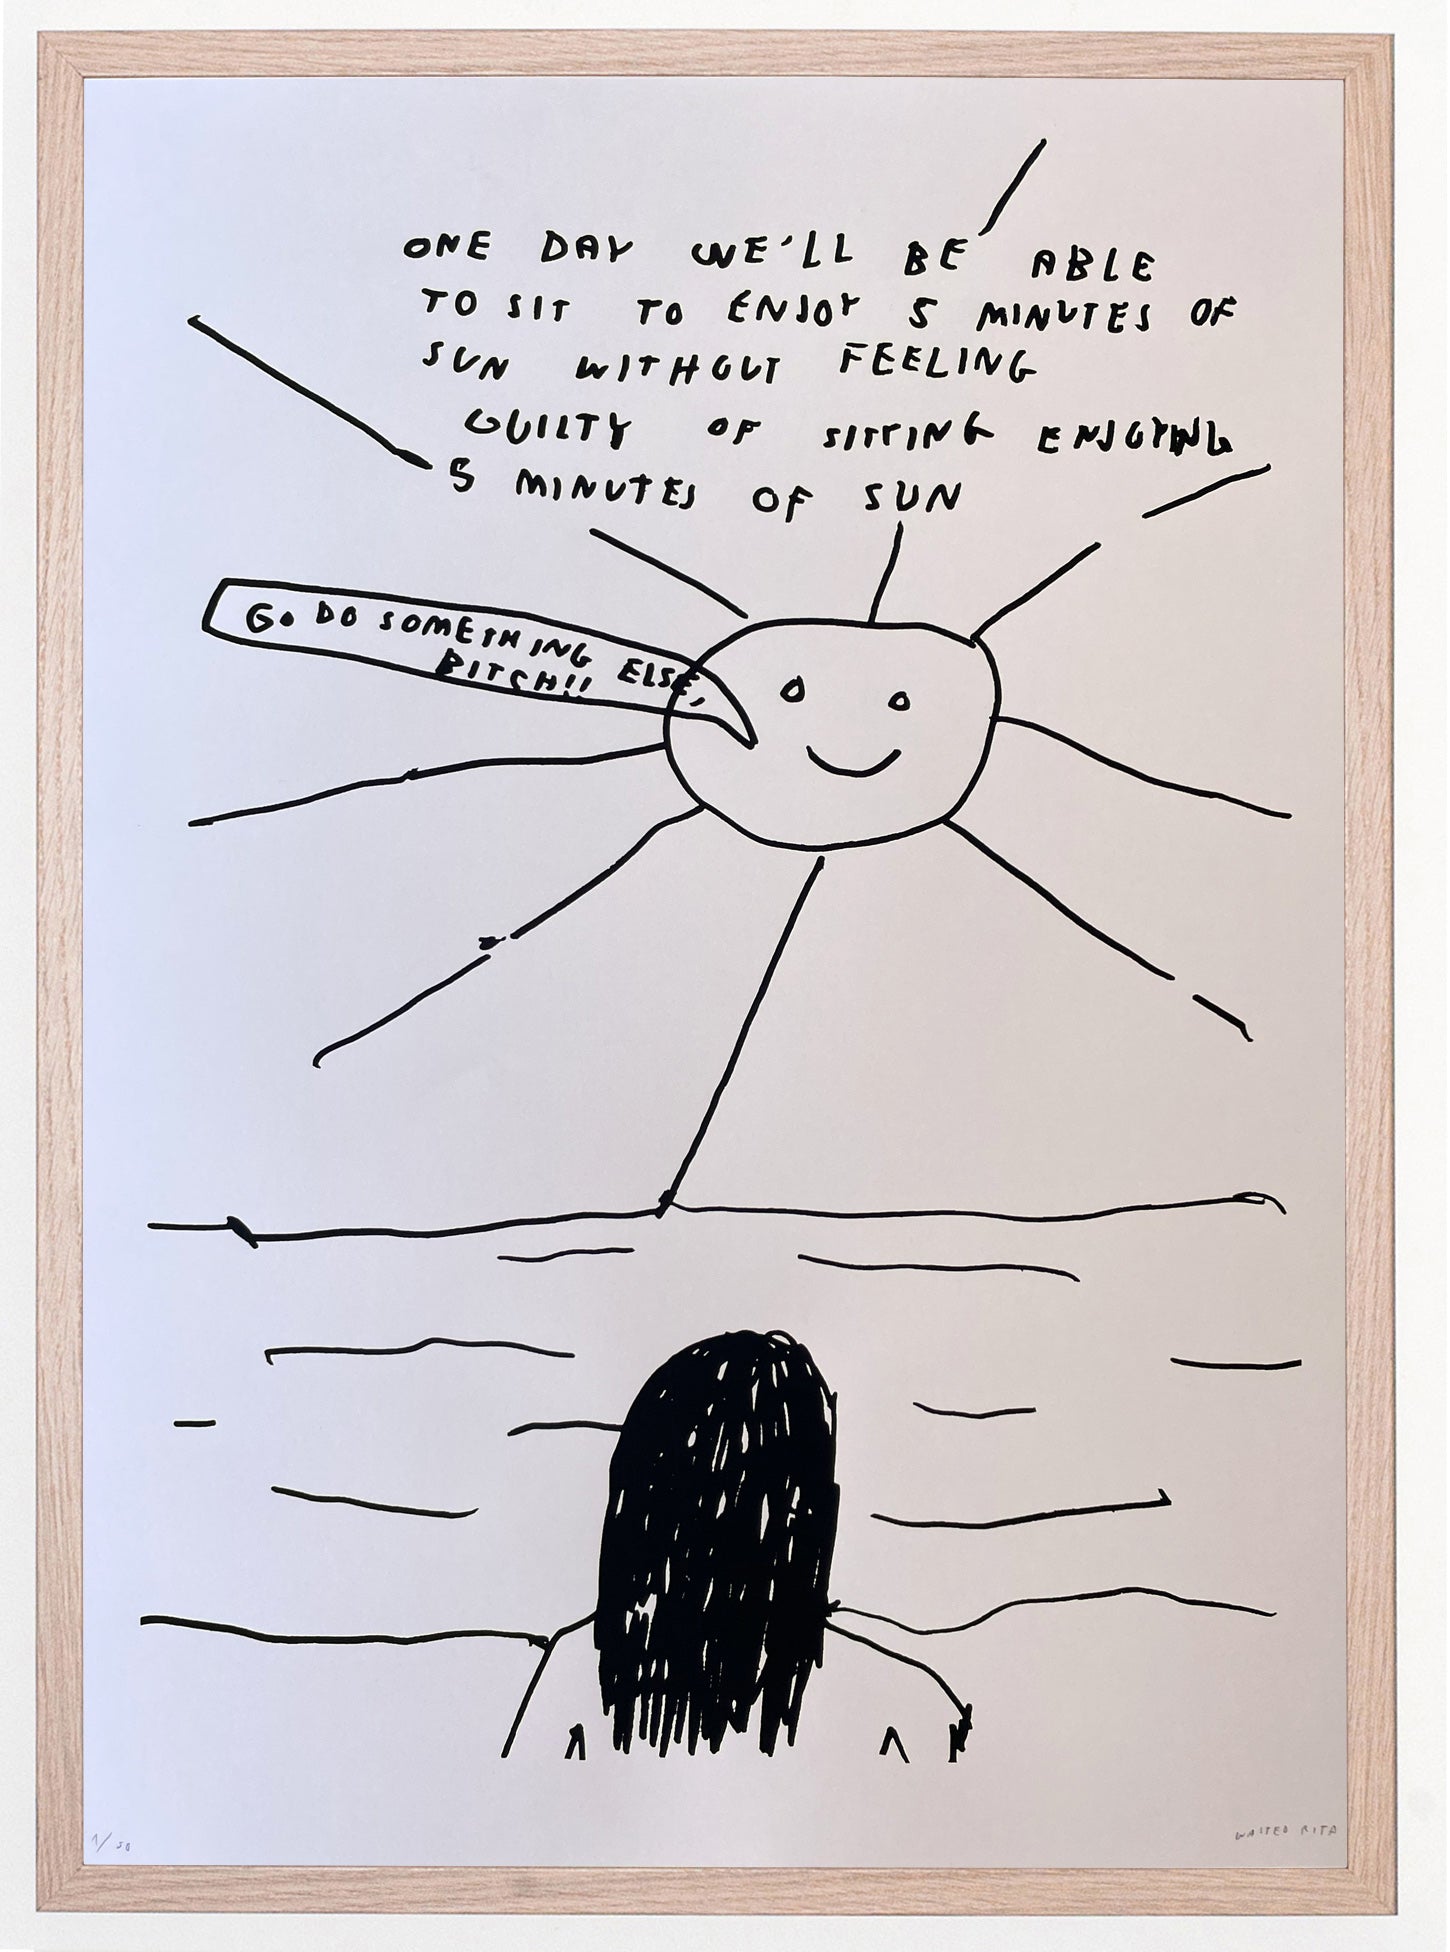 ONE DAY WE'LL BE ABLE
TO SIT TO ENJOY 5 MINUTES OF
SUN WITHOUT FEELING
GUILTY OF SITTING ENJOYING
5 MINUTES OF SUN
GO DO SOMETHING ELSE,
BITCH!!
1/50
WASTED RITA